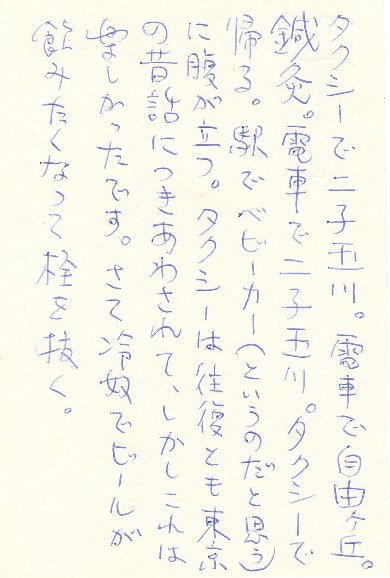 タクシーで二子玉川。電車で自由ヶ丘。
鍼灸。電車で二子玉川。タクシーで
帰る。駅でベビーカー(というのだと思う)
に腹が立つ。タクシーは往復とも東京
の昔話につきあわされて、しかしこれは
楽しかったです。さて冷奴でビールが
飲みたくなって栓を抜く。